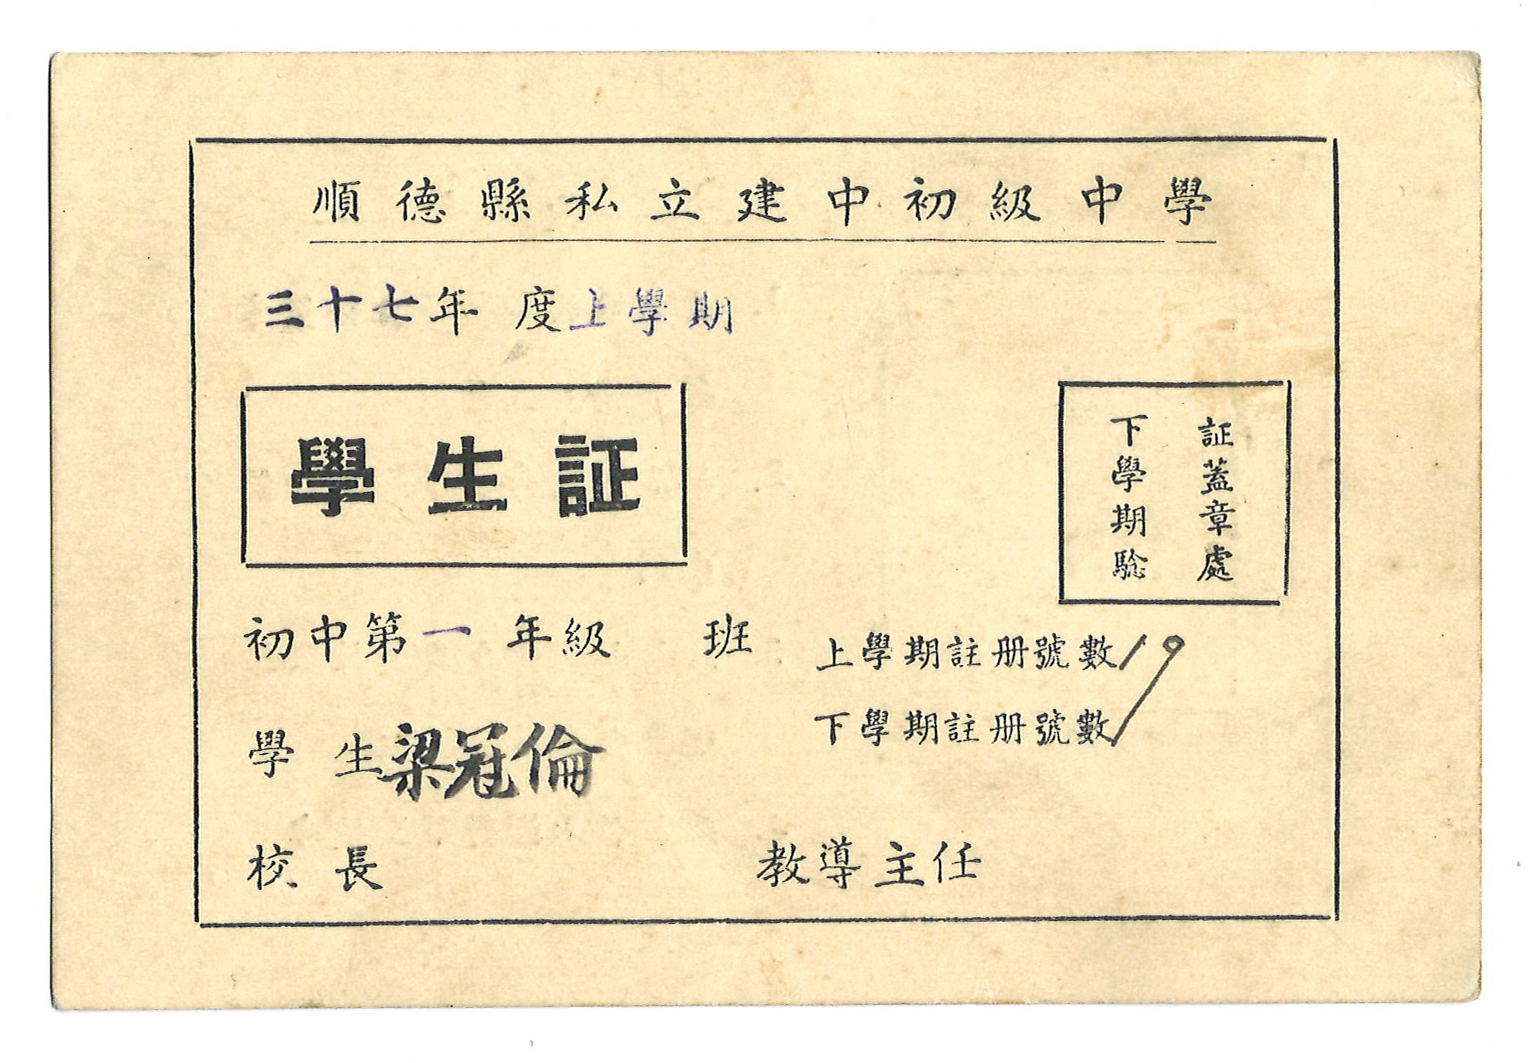 順德縣私立建中初級中學
三十七年度上學期
學生証
下學期驗
証蓋章處
初中第一年級 班
上學期註册號數19
下學期註册號數
學生梁冠倫
校長 教導主任